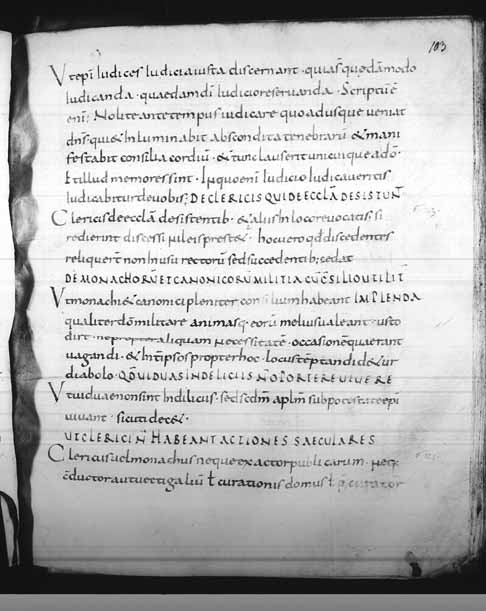 103
Ut epī iudices iudicia iusta discernant · quia s̄ quędā modo
iudicanda · quaedam dī iudicio reservanda · Scriptū ē
enī · Nolite ante tempus iudicare quo adusque veniat
dn̄s qui & inluminabit abscondita tenebrarū & mani
festabit consilia cordiū · & tunc laus erit unicuique a dō ·
ł illud memores sint · In quo enī iudicio iudicaveritis
iudicabitur de vobis; DE CLERICIS QUI DE ECCLĀ DESISTUNT
Clerici si de ecclā desistentib· & aliis in loco revocatis si
redierint discessi
reliquerit non in usu rectorū sed succedentib; cedat
DE MONACHORŪ ET CANONICORŪ MILITIA CŪ CŌSILIO UTILIT
Ut monachi & canonici pleniter consilium habeant IMPLENDA
qualiter dō militare animasq· eorū melius valeant · iusto
dirt · ne propter aliquam necessitatē · occasionē quaerant
vagandi · & in ipsos propter hoc · locus
diabolo · QD̄ VIDUAS IN DELICIIS NŌ OPORTERE VIVERE
Ut viduae non sint in diliciis · sed scdm̄ aplm̄ sub potestate epī
vivant · sicuti dec& ·
UT CLERICI NŌ HABEANT ACTIONES SAECULARES
Clericus vel monachus neque exactor publicarum · neq·
cōductor aut vectigaliū ł curationis domus ł procurator